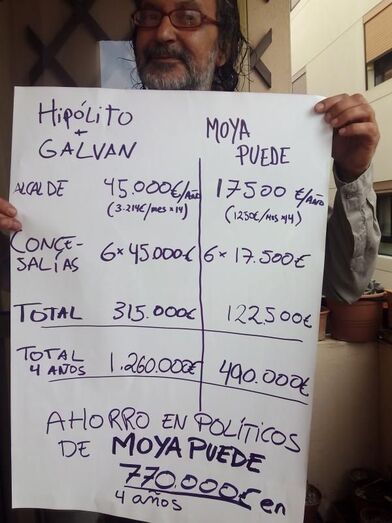 HIPÓLITO + GALVAN
MOYA PUEDE
ALCALDE 45.000€/AÑO 17500€/AÑO
(3.214€/MES x 14) (1250€/MES x 14)
CONCE-SALÍAS 6 x 45.000€ 6 x 17.500€
TOTAL 315.000€ 122500€
TOTAL 4 AÑOS 1.260.000€ 490.000€
AHORRO EN POLÍTICOS
DE MOYA PUEDE
770.000€ en
4 años